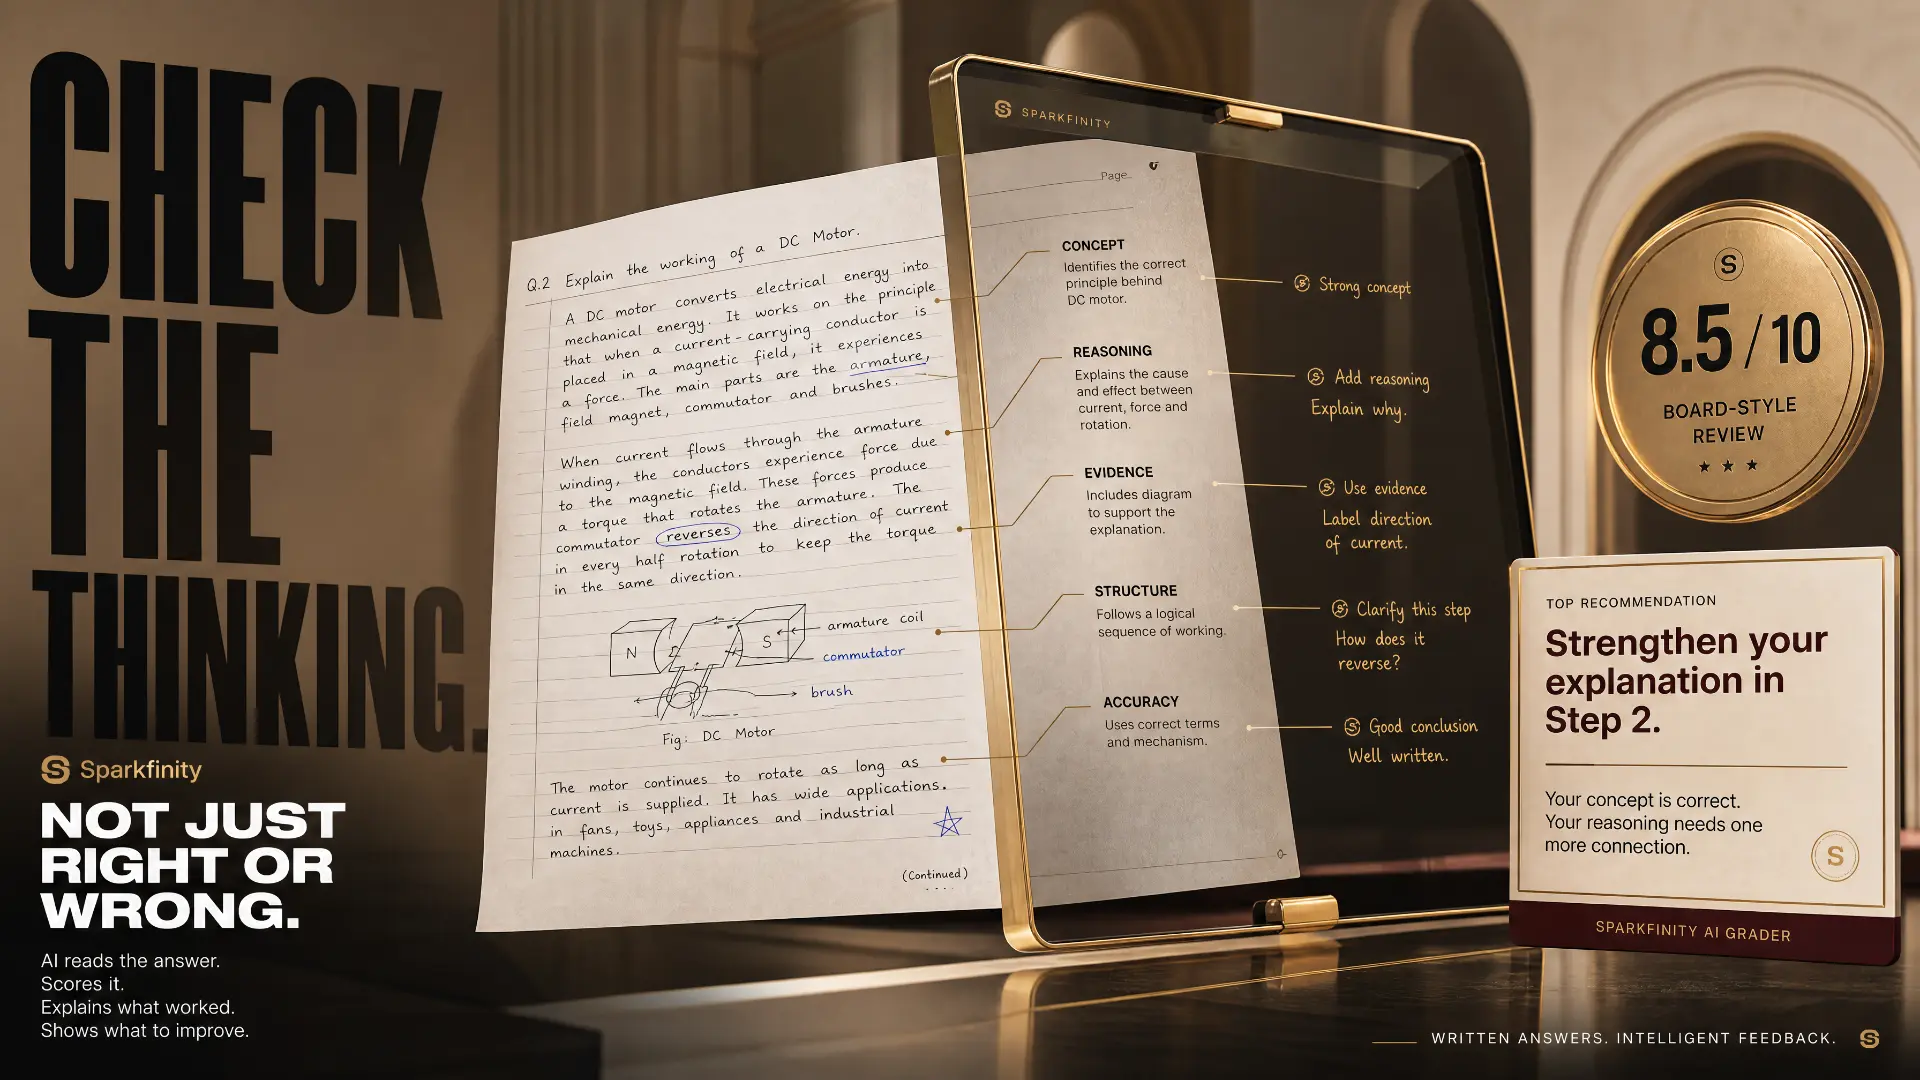 CHECK
THE
THINKING.
Sparkfinity
NOT JUST
RIGHT OR
WRONG.
AI reads the answer.
Scores it.
Explains what worked.
Shows what to improve.
Q.2 Explain the working of a DC Motor.
A DC motor converts electrical energy into
mechanical energy. It works on the principle
that when a current-carrying conductor is
placed in a magnetic field, it experiences
a force. The main parts are the armature,
field magnet, commutator and brushes.
When current flows through the armature
winding, the conductors experience force due
to the magnetic field. These forces produce
a torque that rotates the armature. The
commutator reverses the direction of current
in every half rotation to keep the torque
in the same direction.
N
S
armature coil
commutator
brush
Fig: DC Motor
The motor continues to rotate as long as
current is supplied. It has wide applications.
in fans, toys, appliances and industrial
machines.
(Continued)
SPARKFINITY
Page
CONCEPT
Identifies the correct
principle behind
DC motor.
REASONING
Explains the cause
and effect between
current, force and
rotation.
EVIDENCE
Includes diagram
to support the
explanation.
STRUCTURE
Follows a logical
sequence of working.
ACCURACY
Uses correct terms
and mechanism.
Strong concept
Add reasoning
Explain why.
Use evidence
Label direction
of current.
Clarify this step
How does it
reverse?
Good conclusion
Well written.
S
8.5/10
BOARD-STYLE
REVIEW
TOP RECOMMENDATION
Strengthen your
explanation in
Step 2.
Your concept is correct.
Your reasoning needs one
more connection.
S
SPARKFINITY AI GRADER
WRITTEN ANSWERS. INTELLIGENT FEEDBACK.